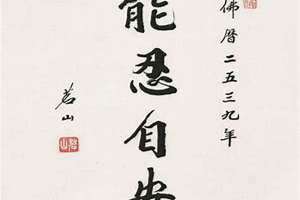 佛曆二五三九年
能忍自安
茗山